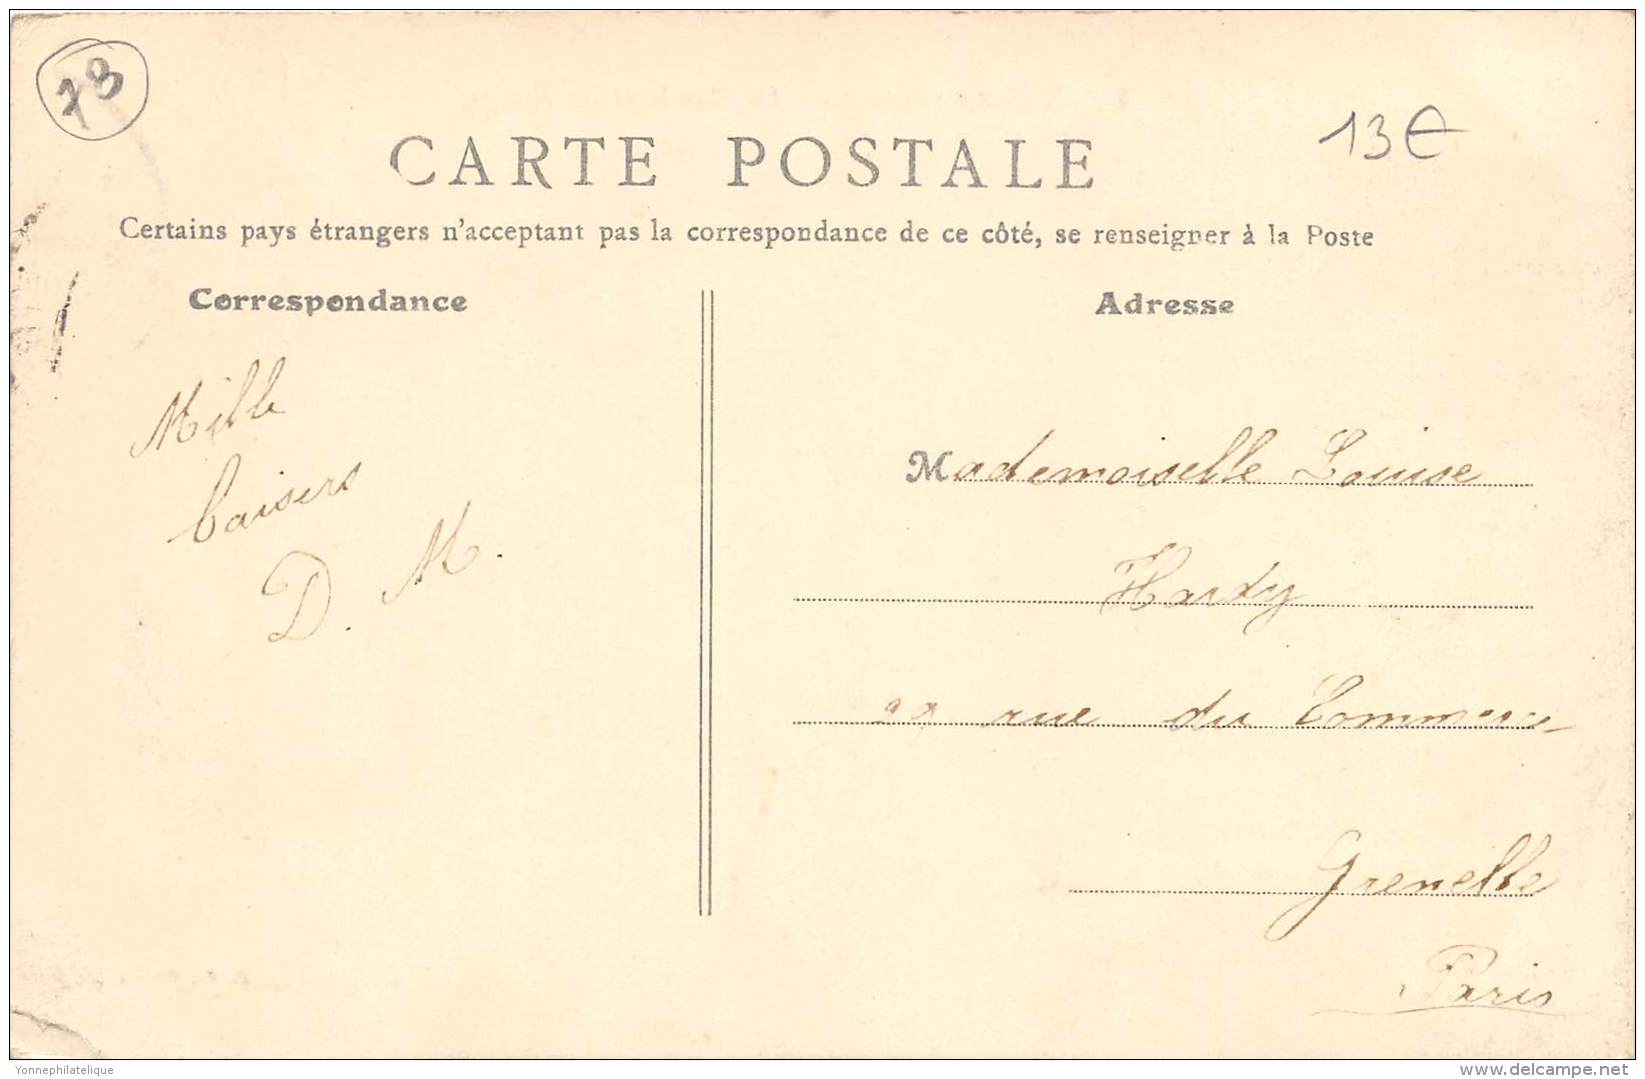 78
13€
CARTE POSTALE
Certains pays étrangers n'acceptant pas la correspondance de ce côté, se renseigner à la Poste
Correspondance
Mille
baisers
D. M.
Adresse
Mademoiselle Louise
Hardy
rue du Commerce
Grenelle
Paris
Yonnephilatelique
delcampe.net